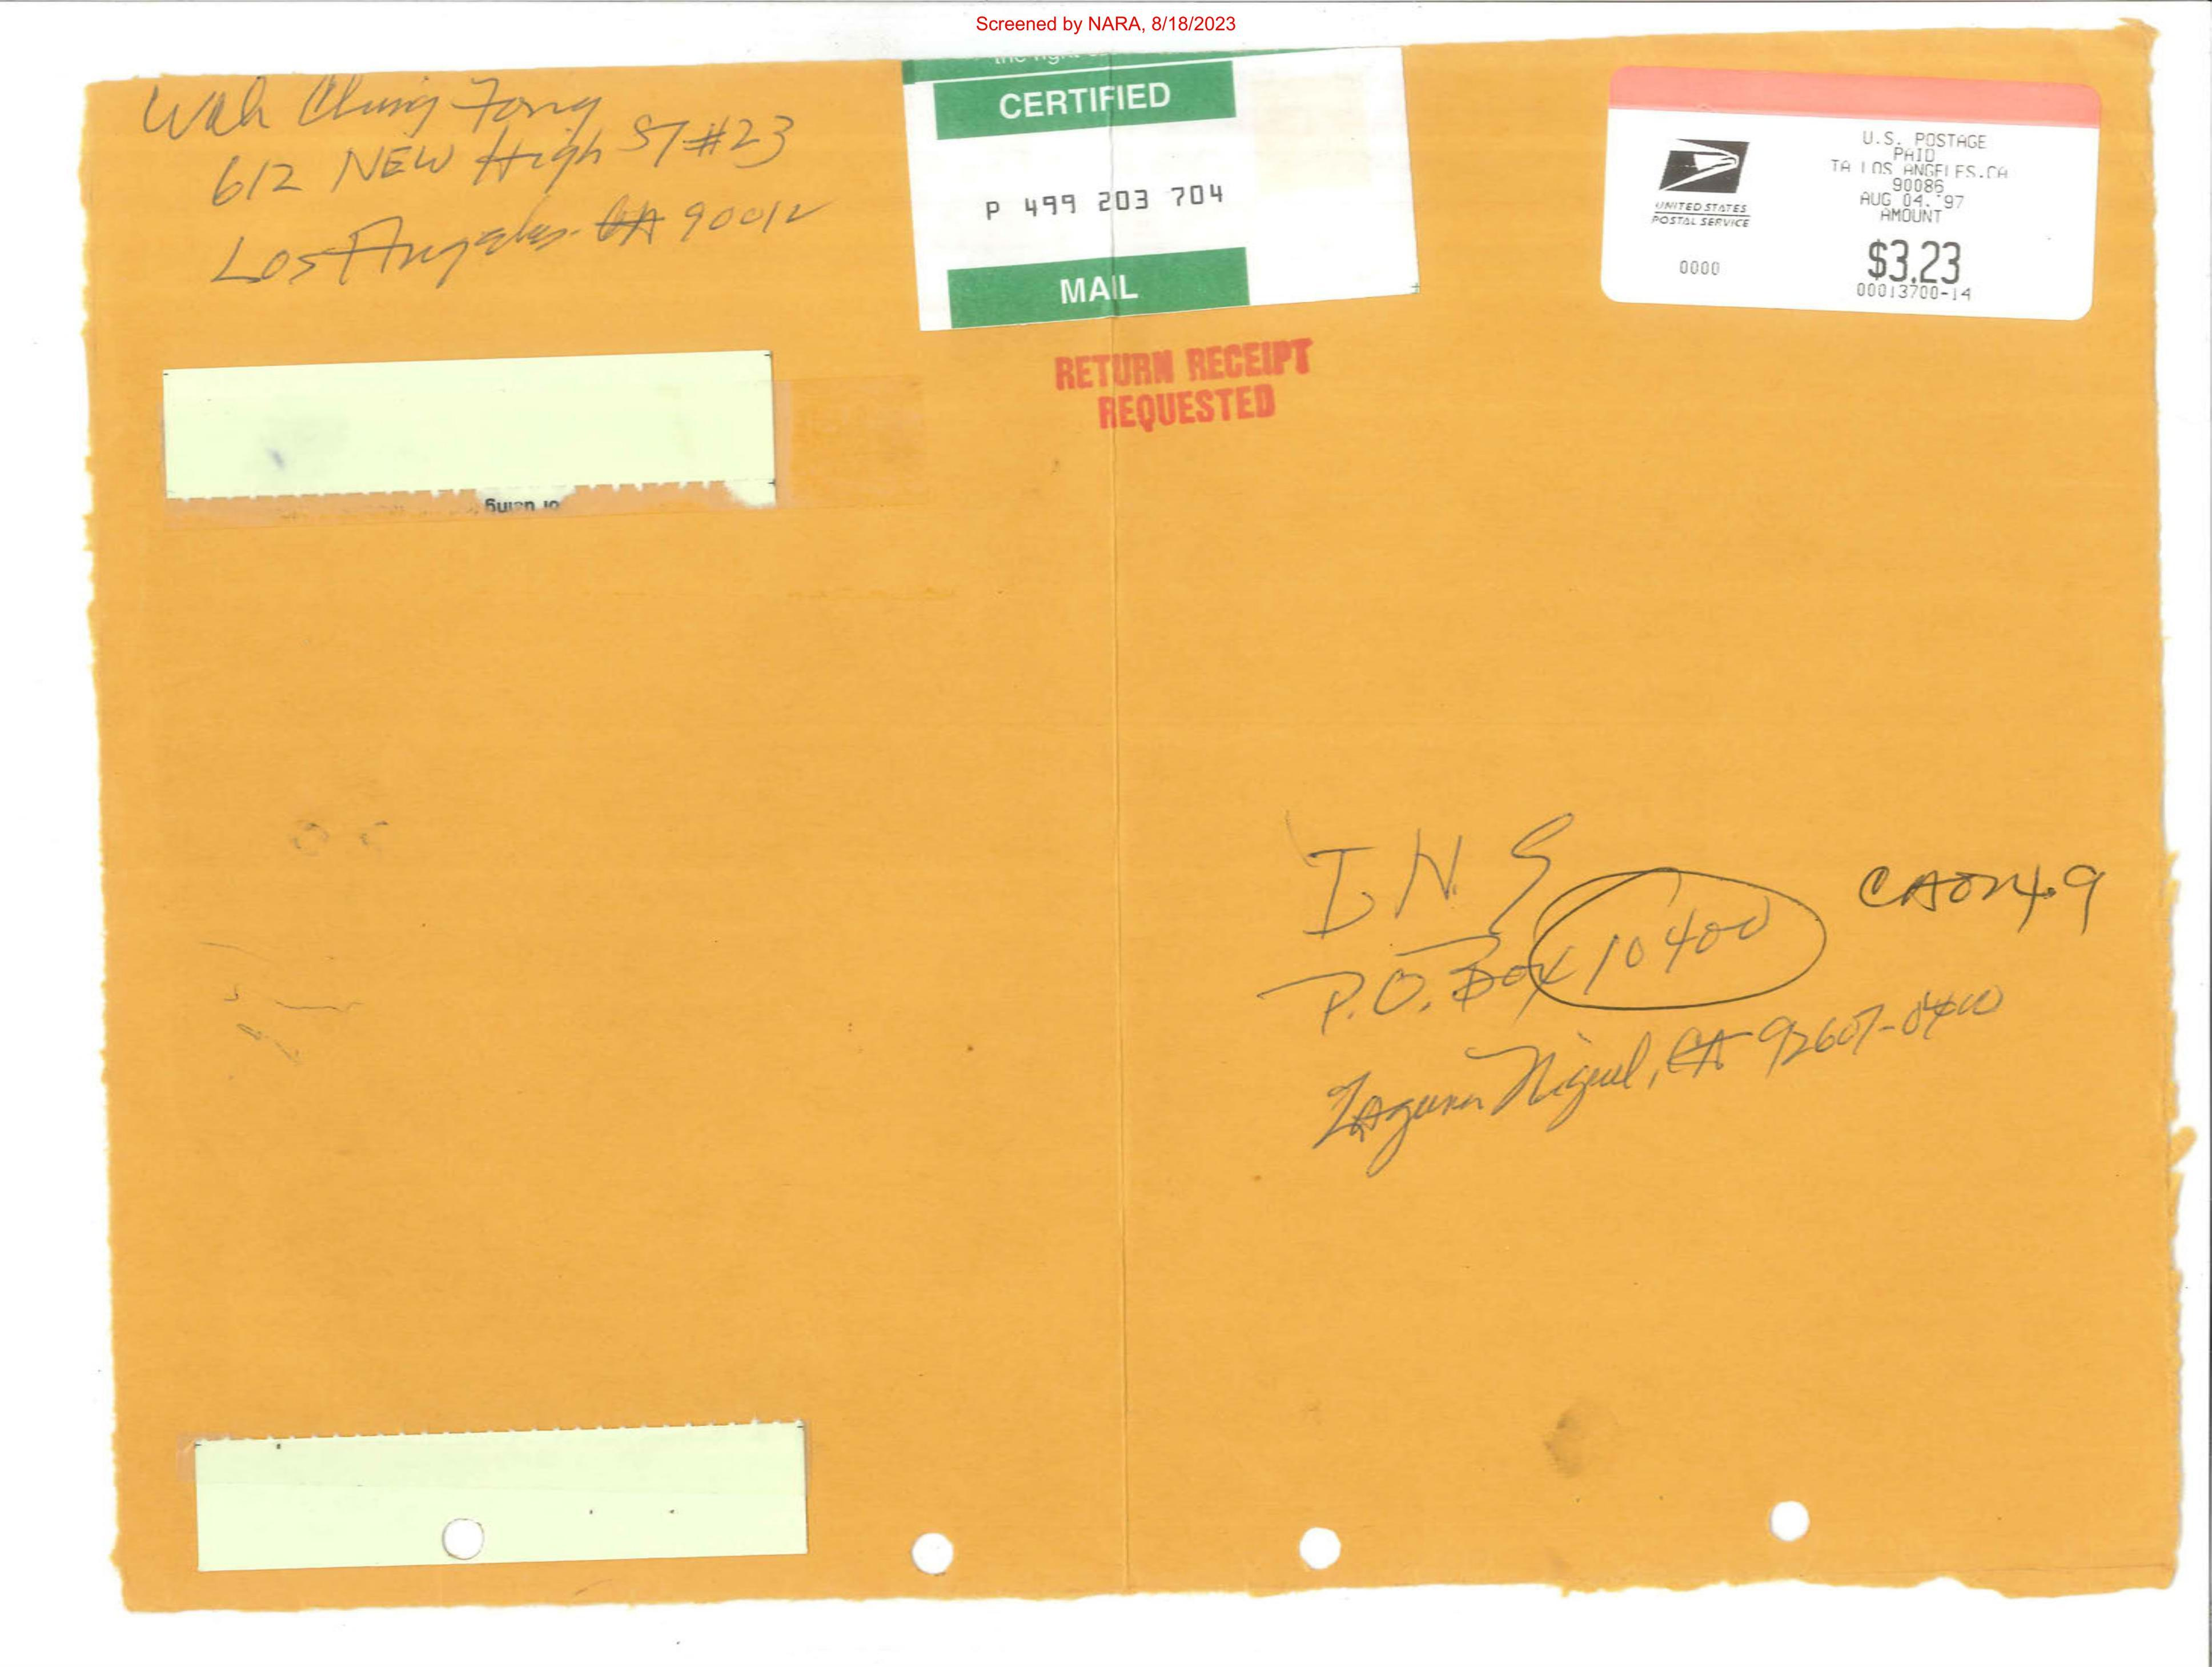 Screened by NARA, 8/18/2023
Wah Chung Fong
612 NEW High ST #23
Los Angeles. CA 90012
CERTIFIED
P 499 203 704
MAIL
UNITED STATES
POSTAL SERVICE
0000
U.S. POSTAGE
PAID
TA LOS ANGELES.CA
90086
AUG 04. '97
AMOUNT
$3.23
00013700-14
RETURN RECEIPT
REQUESTED
or using
I.N.S
P.O. Box 10400
Laguna Niguel, CA 92607-0400